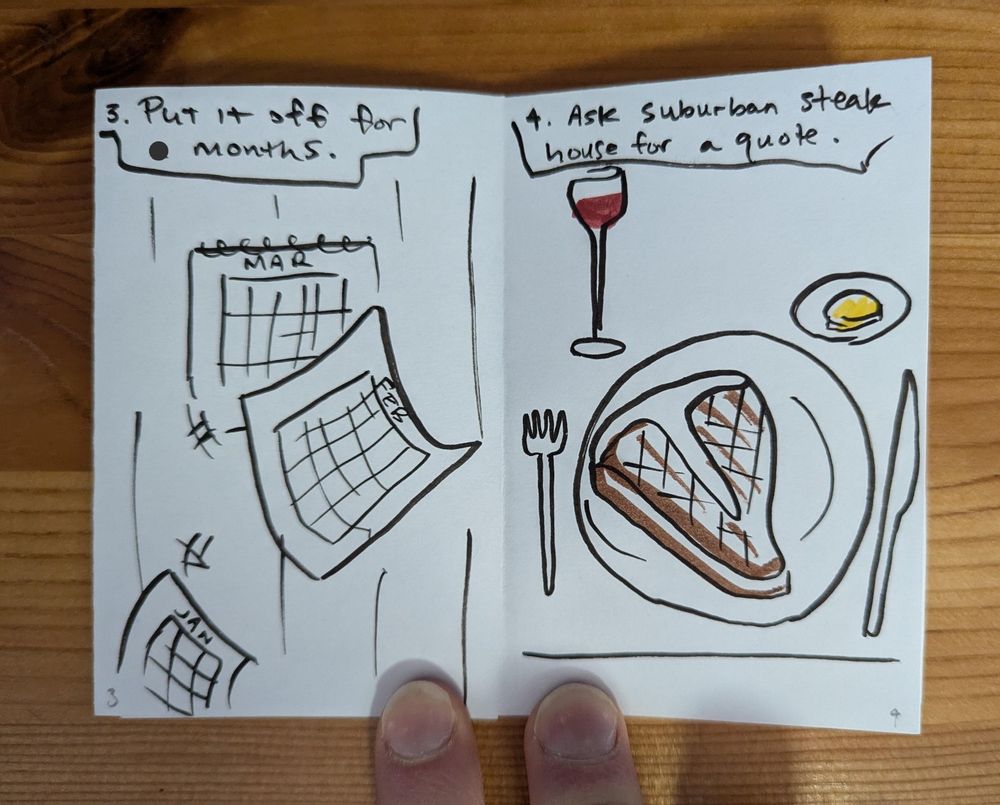 3. Put it off for
months.
MAR
FEB
JAN
3
4. Ask suburban steak
house for a quote.
4